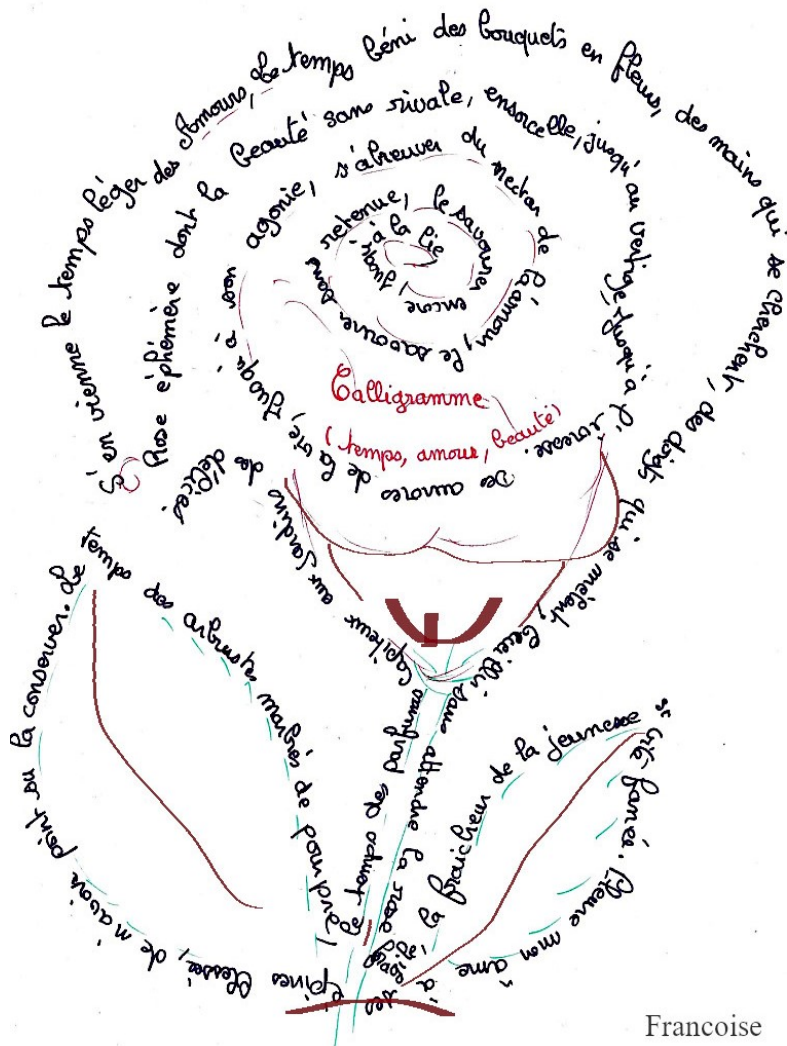 S'en vienne le temps léger des Amours, Le temps béni des bouquets en fleurs, des mains qui se cherchent, des doigts qui se mêlent,
sans attendre la rose
la fraîcheur de la jeunesse si vite fanée. Pleure mon âme à
des épines blessée, de n'avoir point su la conserver. Le temps des Arbustes de pourpre,
Le temps des parfums
Capiteux aux Jardins des délices.
Rose éphémère dont la beauté sans rivale, ensorcelle, jusqu'au vertige, Jusqu'à l'ivresse.
Des aurores de la vie, Jusqu'à son agonie, s'abreuver du nectar de l'amour, le savourer sans retenue, le savourer encore Jusqu'à la lie
Calligramme
(temps, amour, beauté)
Francoise